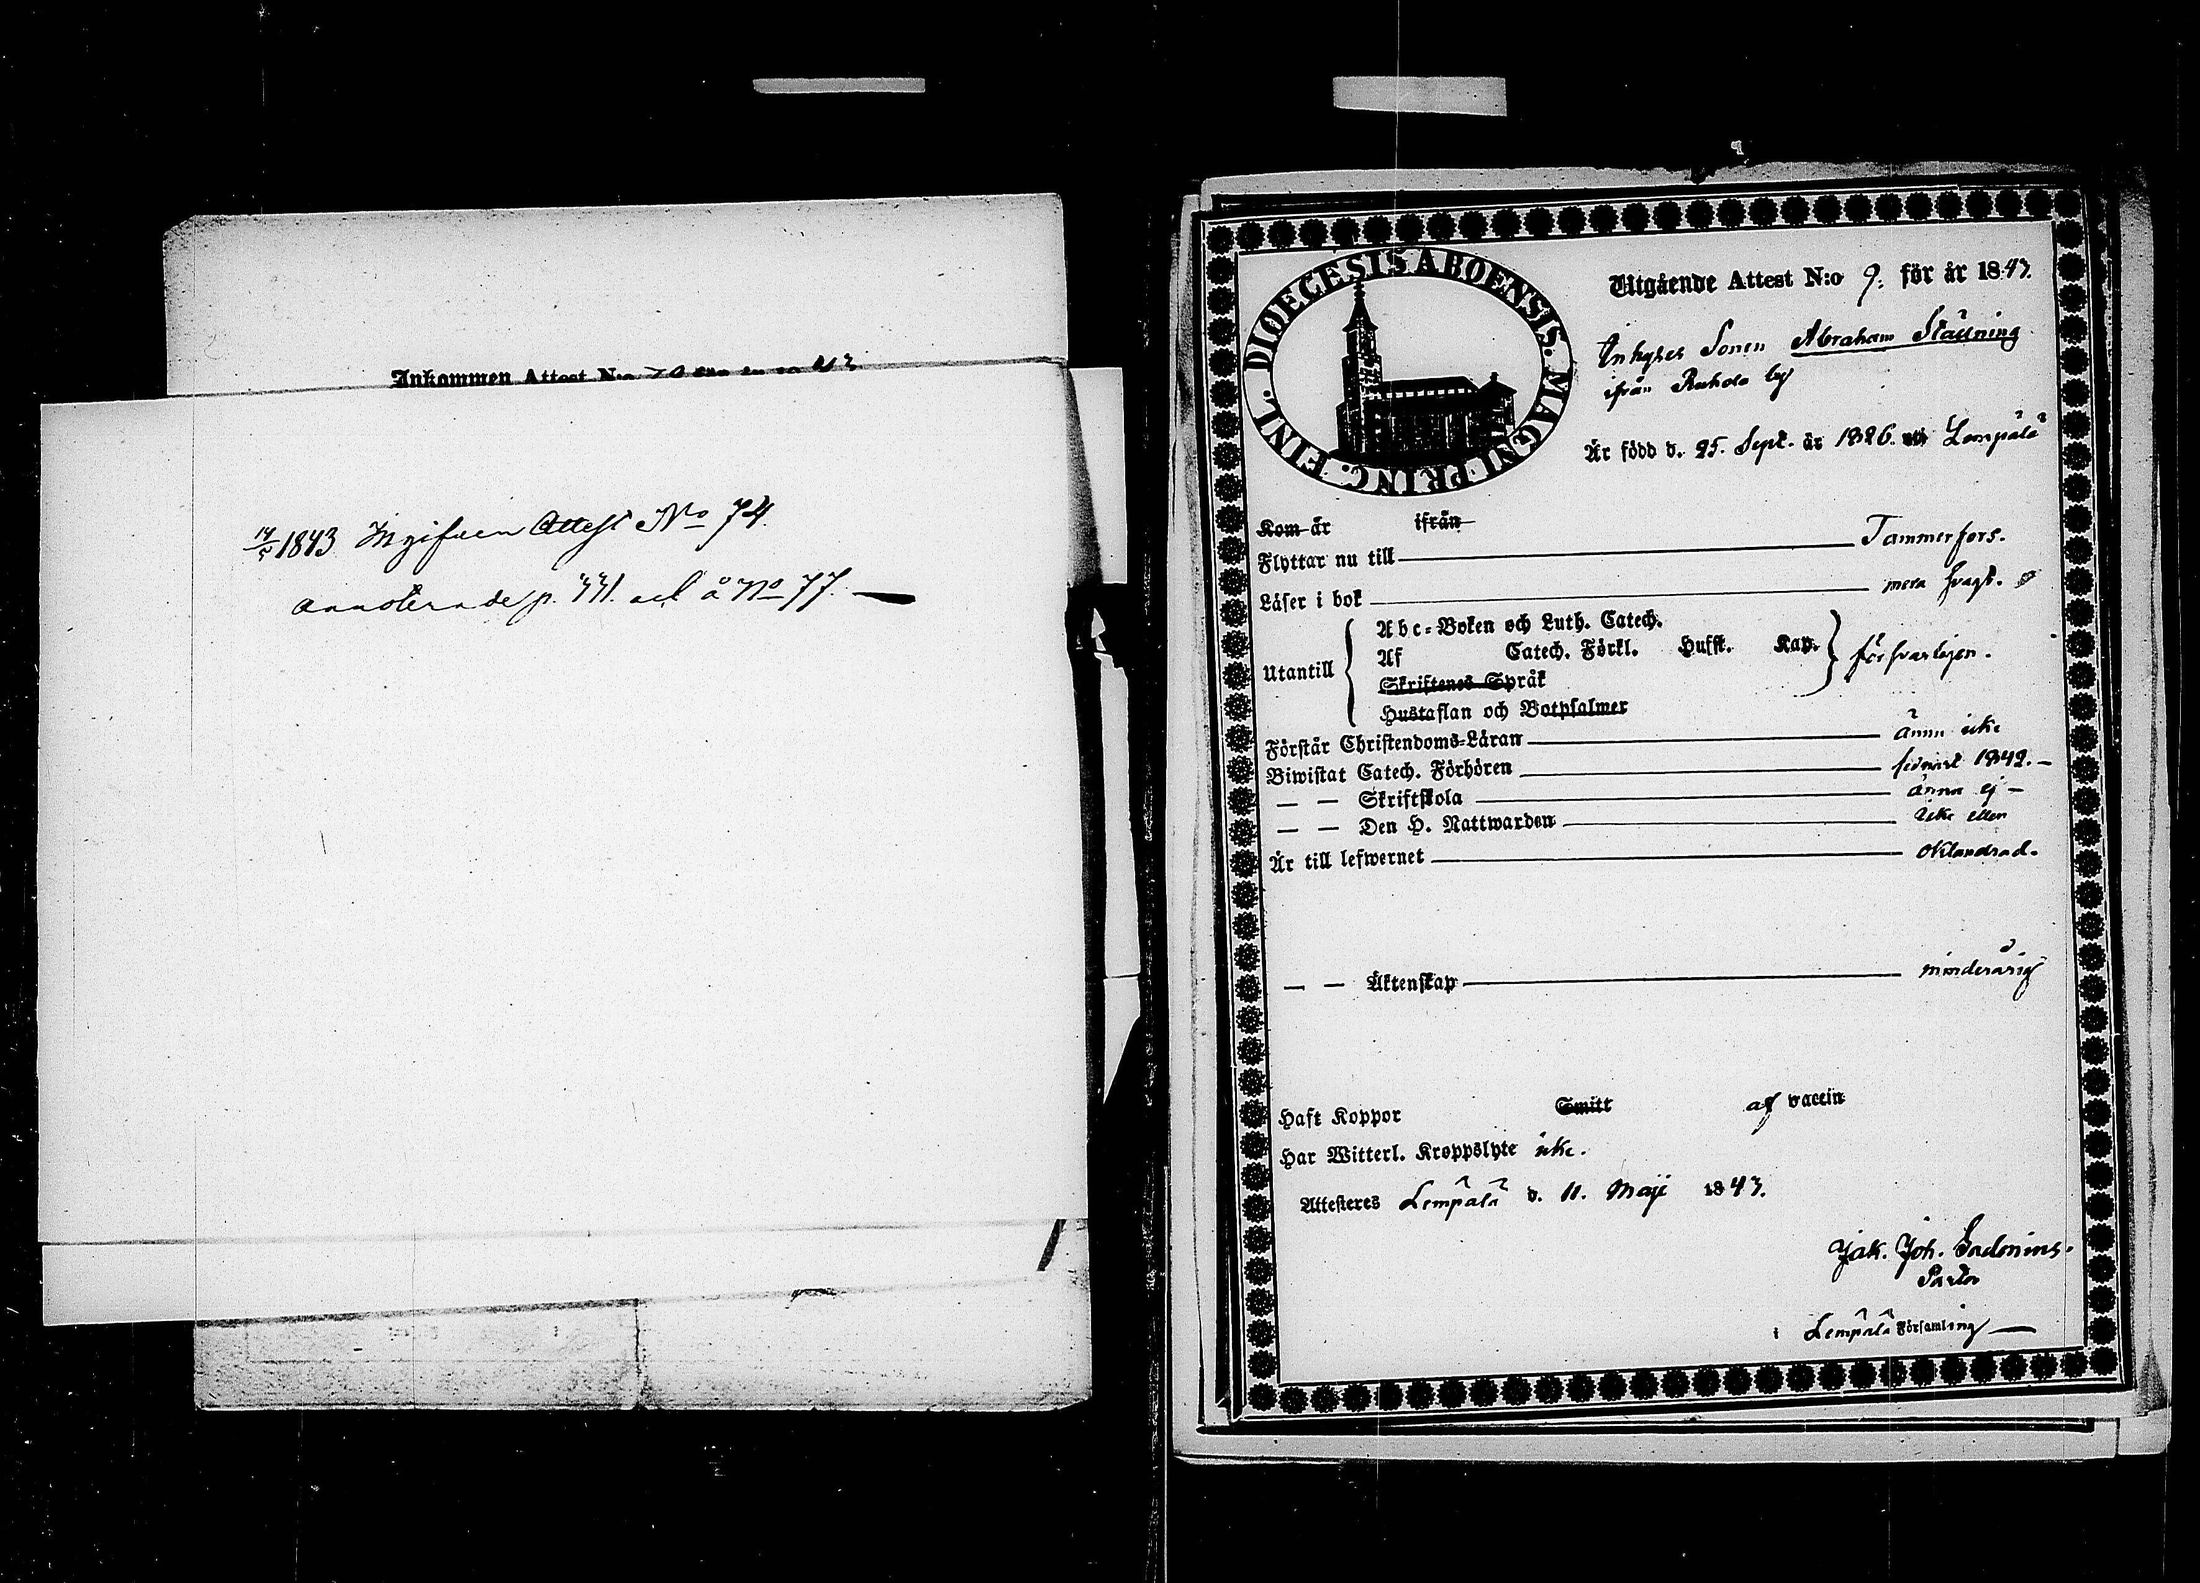 Inkommen Attest N:o
14/5 1843 Ingifven Attest No 74.
annoterade p. 331. ad å No 77.
DIOECESIS ABOENSIS. MAGNI PRINC. FINL.
Utgående Attest N:o 9. för år 1843.
Inhyses Sonen Abraham Ståhlning
ifrån Ruhola by
Är född d. 25. Sept. år 1826. uti Lempälä
Kom år ifrån
Flyttar nu till Tammerfors.
Läser i bok mera svagt.
Utantill
Abc-Boken och Luth. Catech.
Af Catech. Förkl. Hufst. Kap. försvarligen.
Skriftenes Språk
Hustaflan och Botpsalmer
Förstår Christendoms-Läran ännu icke
Biwistat Catech. Förhören sednast 1842.
— — Skriftskola ännu ej
— — Den H. Nattwarden icke eller
Är till lefwernet oklandrad.
— — Äktenskap minderårig
Haft Koppor Smitt af vaccin
Har Witterl. Kroppslyte icke.
Attesteres Lempälä d. 11. Maji 1843.
Jak. Joh. Gadonius.
Pastor
i Lempälä Församling